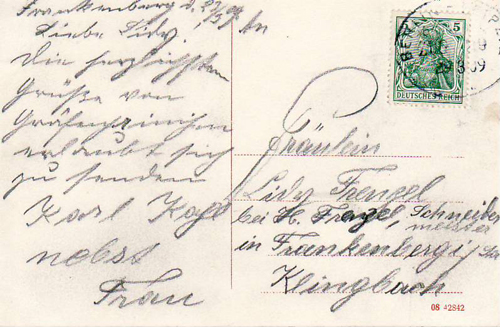 Frankenberg d. 27/3 09
Liebe Lidy.
Die herzlichsten
Grüße von
erlaubt sich
zu senden
Karl Kohl
nebst
Frau
5
DEUTSCHES REICH
Fräulein
Lidy Frenzel
bei H. Frenzel, Schneider
meister
in Frankenberg i/ Sa
Klingbach
08 42842